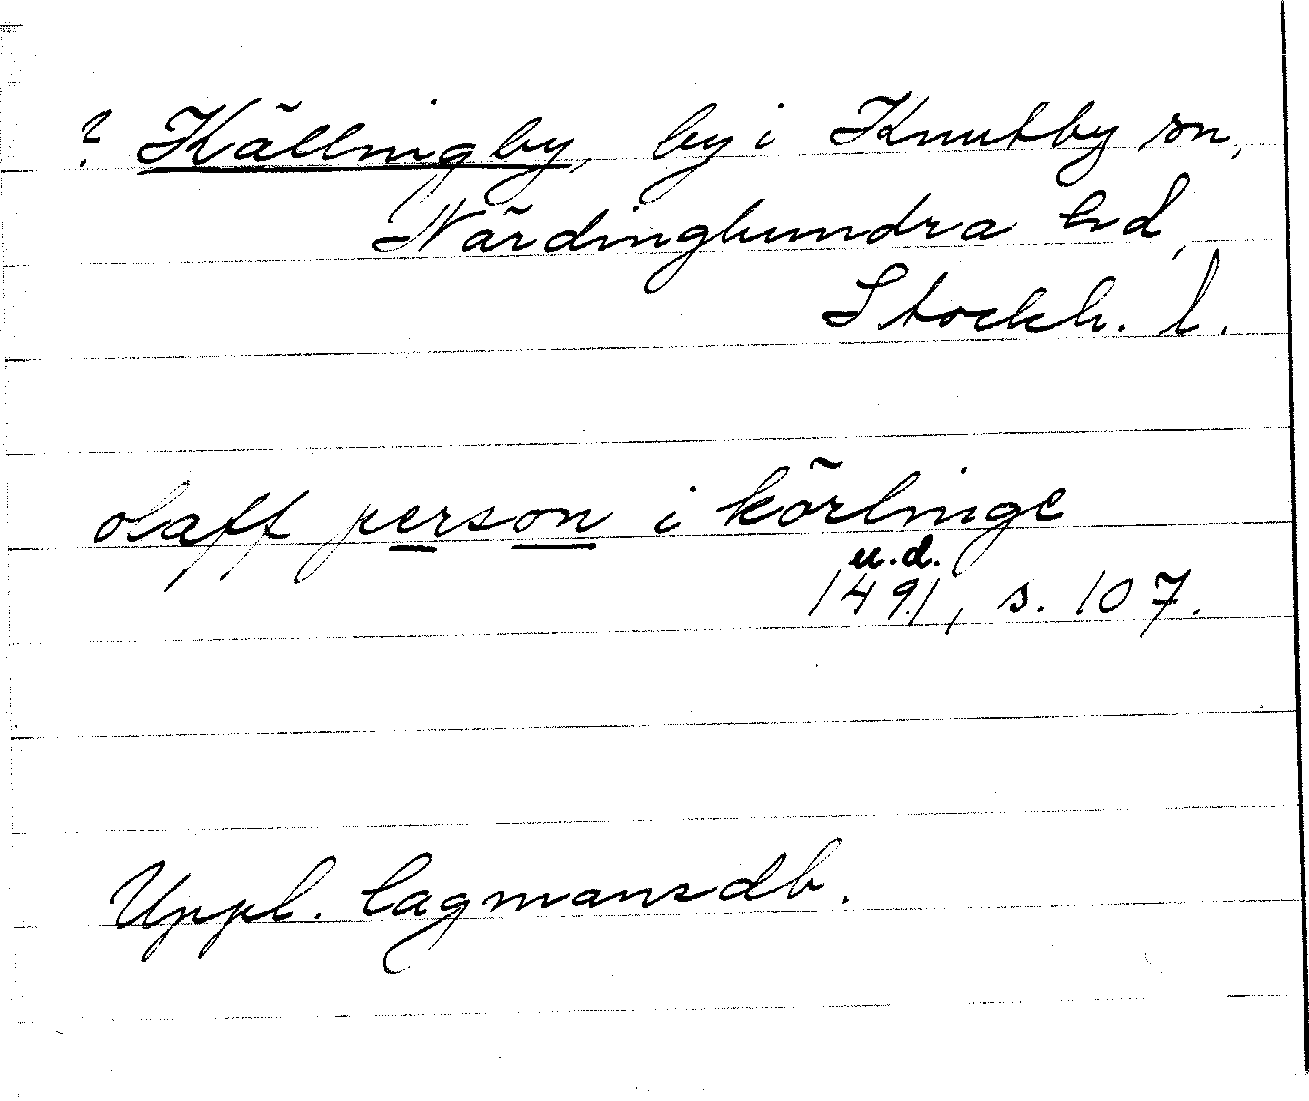 ? Källingby, by i Knutby sn,
Närdinghundra hd,
Stockh. l.
olaff person i körlinge
u.d.
1491, s. 107.
Uppl. lagmansdb.